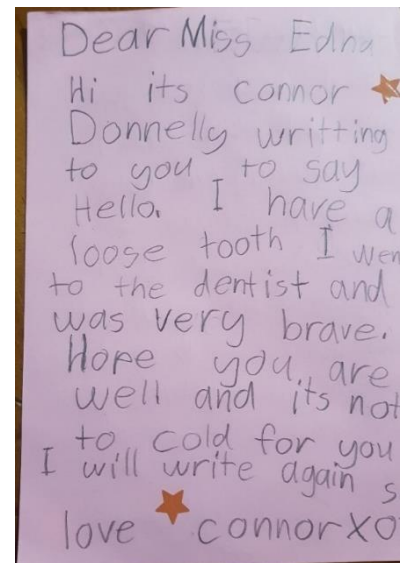 Dear Miss Edna
Hi its connor
Donnelly writting
to you to say
Hello. I have a
loose tooth I
to the dentist and
was very brave.
Hope you are
well and its not
to cold for you
I will write again
love connor